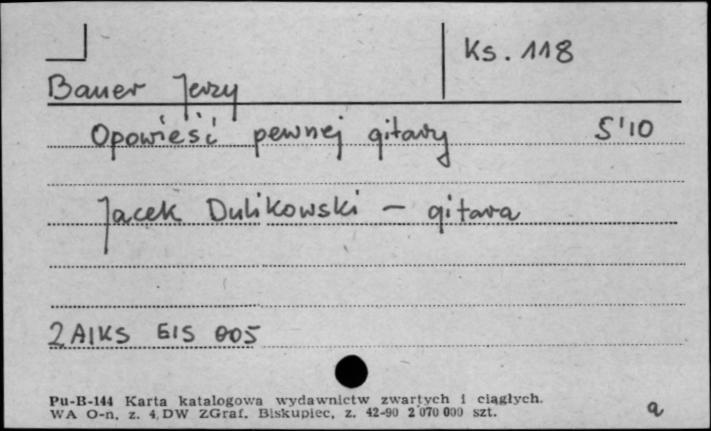 Ks. 118
Bauer Jerzy
Opowieść pewnej gitary 5'10
Jacek Dulikowski - gitara
2AIKS EIS 005
Pu-B-144 Karta katalogowa wydawnictw zwartych i ciągłych.
WA O-n, z. 4, DW ZGraf. Biskupiec, z. 42-90 2 070 000 szt.
a